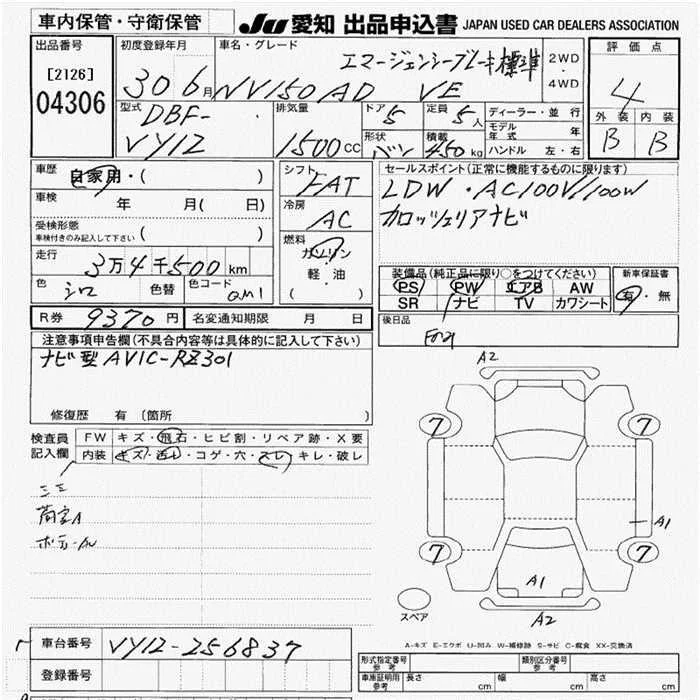 車内保管・守衛保管
JU 愛知 出品申込書 JAPAN USED CAR DEALERS ASSOCIATION
出品番号
[2126]
04306
初度登録年月
30 6月
車名・グレード
エマージェンシーブレーキ標準
NV150 AD VE
2WD
・
4WD
評価点
4
外装 内装
B B
型式
DBF-
VY12
排気量
1500CC
ドア
5
定員
5人
形状
バン
積載
450kg
ディーラー・並行
モデル年式 年
ハンドル 左・右
車歴
自家用・( )
車検
年 月( 日)
受検形態
車検付きのみ記入して下さい ( )
走行
3万4千500km
色
シロ
色替
色コード
QM1
シフト
FAT
冷房
AC
燃料
ガソリン
軽・油
( )
セールスポイント(正常に機能するものに限ります)
LDW・AC100V/100W
カロッツェリアナビ
装備品(純正品に限り○をつけてください)
PS PW エアB AW
SR ナビ TV カワシート
新車保証書
有・無
R券 9370円
名変通知期限 月 日
後日品
注意事項申告欄(不具合内容等は具体的に記入して下さい)
ナビ型 AVIC-RZ301
修復歴 有 (箇所 )
検査員
記入欄
FW キズ・飛石・ヒビ割・リペア跡・X要
内装 キズ・汚レ・コゲ・穴・スレ・キレ・破レ
荷室A
A2
7
7
7
7
A1
A1
A2
スペア
A-キズ E-エクボ U-凹み W-補修跡 S-サビ C-腐食 XX-交換済
車台番号 VY12-256837
登録番号
形式指定番号
参考
類別区分番号
参考
車庫証明用
参考
長さ cm
幅 cm
高さ cm